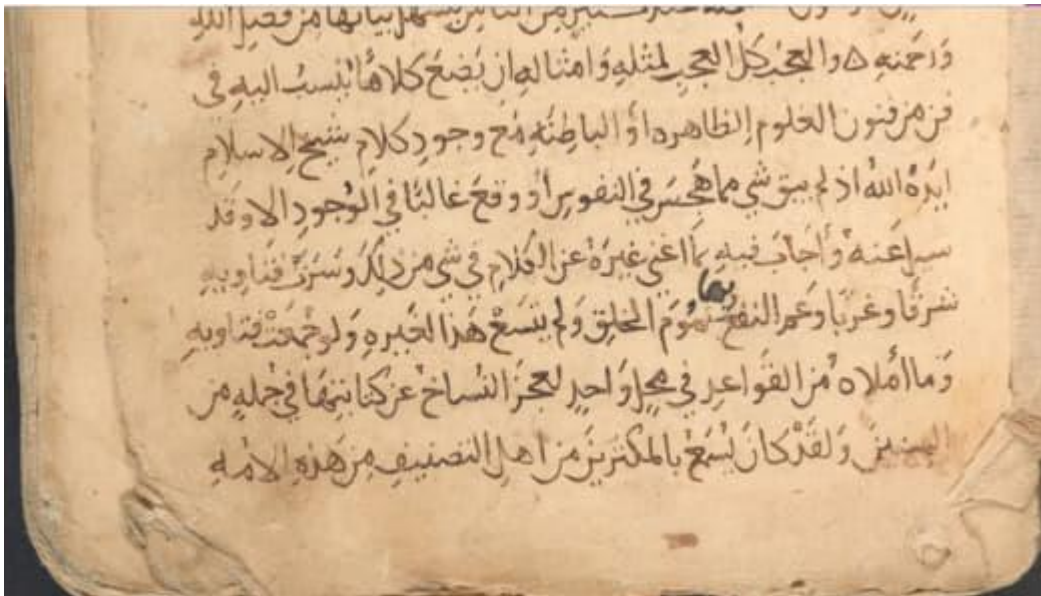 من الناس يسهل بيانها من فضل الله
ورحمته ه والعجب كل العجب لمثله وامثاله ان يضع كلاما ينسب اليه في
فن من فنون العلوم الظاهره او الباطنه مع وجود كلام شيخ الاسلام
ايده الله اذ لم يبق شي مما هجس في النفوس أو وقع غالبا في الوجود الا وقد
سيل عنه وأجاب فيه بما اغنى غيره عن الكلام في شي من ذلك وسرت فتاويه
شرقا وغربا وعم النفع بها عموم الخلق ولم يتسع هذا لغيره ولو جمعت فتاويه
وما أملاه من القواعد في محل واحد لعجز النساخ عن كتابتها في جمله من
السنين ولقد كان يسمع بالمكثرين من اهل التصنيف من هذه الامه